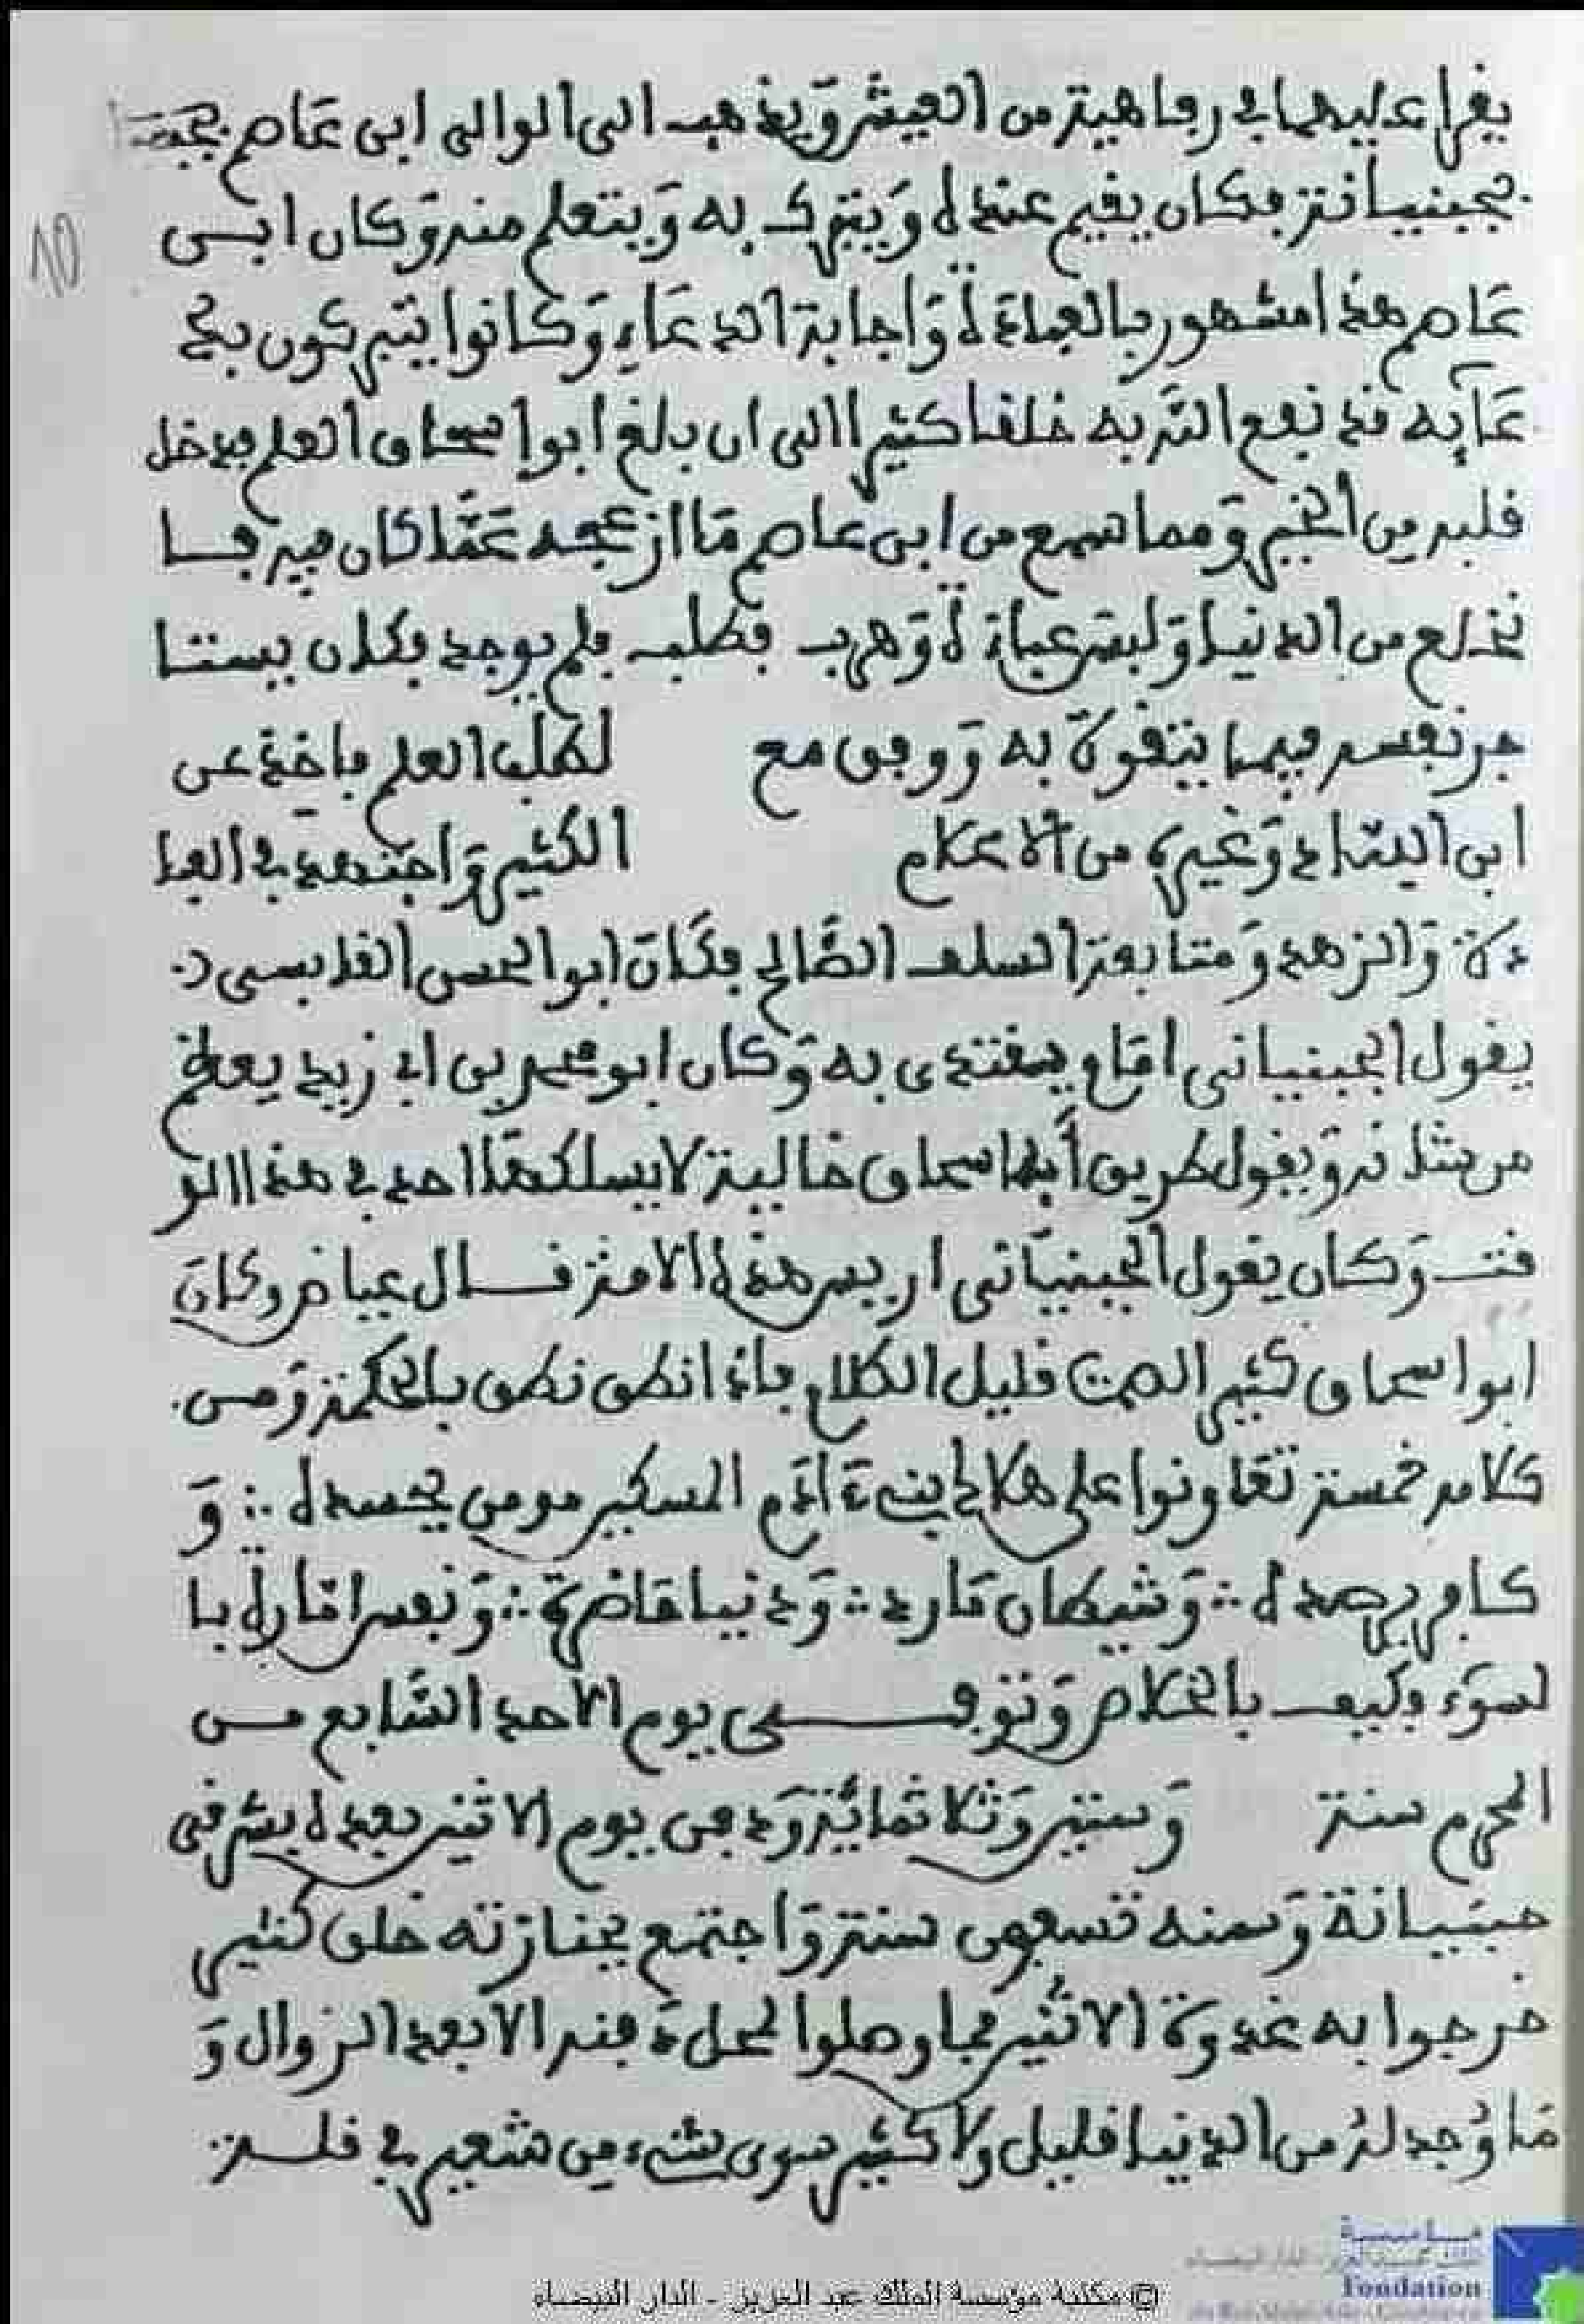 يقرا عليهما في رفاهية من العيش وَيذهب الى الوالي ابى عَاصم
بجبنيانة فكان يقيم عنده وَيتبرك به وَيتعلم منه وَكان ابى
عَاصم هذا مشهور بالعبادة وَاجابة الدعَاءِ وَكانوا يتبركون بدُ
عَآيِه قد نفع الله به خلقا كثيرا الى ان بلغ ابوا سحاق العلم فدخل
قلبه من الخير وَمما سمع من ابى عاصم مَا ازعجه عَمَّا كان فيه فا
نخلع من الدنيا وَلبس عباءة وَهرب فطلبه فلم يوجد فكان يستا
جر نفسه فيما يتقوت به وَوفق مع لطلب العلم فاخذ عن
ابى وَغيره من الاعلام الكثير وَاجتهد في العبا
دة وَالزهد وَمتابعة السلف الصَّالح فكَانَ ابوا الحسن القابسي
يقول الجبنيانى امَام يقتدى به وَكان ابو محمد بن ابى زيد يعظم
من شانه وَيقول طريق أبا اسحاق خالية لا يسلكهَا احد في هذا الو
قت وَكان يقول الجبنيَانى هذه الامة قال عياض وكانَ
ابوا سحاق كثير الصمت قليل الكلام فاذا نطق نطق بالحكمة وَمن
كلامه خمسة تعَاونوا على هلاك ابن ءادَم المسكين مومن يحسده وَ
كافر يرصده وَشيطان مَارد وَدنيا وَنفس امَّارة با
لسوَء وكيف بالخلاص وَتوفى يوم الاحد السَّابع من
المحرم سنة وَستين وَثلاثمائة وَدفن يوم الاثنين بعده بشرقى
جبنيانة وَسنه تسعون سنة وَاجتمع بجنازته خلق كثير
خرجوا به غدوة الاثنين فما وصلوا لمحل دفنه الا بعد الزوال وَ
مَا وُجد لهُ من الدنيا قليل ولا كثير سوى شىء من شعير في قلة
© مكتبة مؤسسة الملك عبد العزيز - الدار البيضاء
fondation